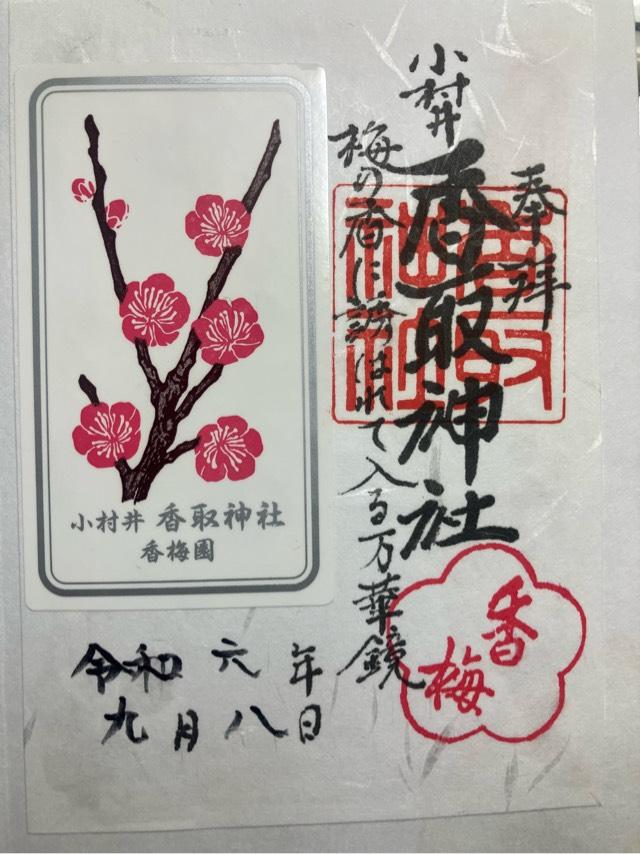 奉拝
小村井
香取神社
梅の香に誘はれて入る万華鏡
香取
神社
香梅
小村井 香取神社
香梅園
令和 六 年
九月八日